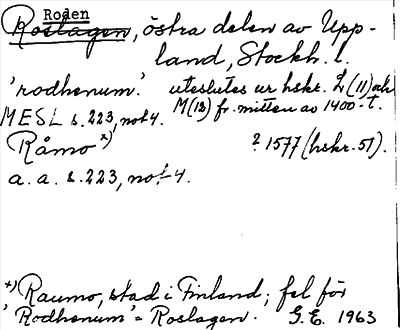 Roden
Roslagen, östra delen av Upp-
land, Stockh. l.
'rodhenum'. uteslutes ur hskr. L (11) och
M(12) fr. mitten av 1400-t.
MESL s.223, not 4.
Råmo *) ? 1577 (hskr. 51).
a. a. s.223, not 4.
*) Raumo, stad i Finland; fel för
'Rodhenum' = Roslagen. G.E. 1963